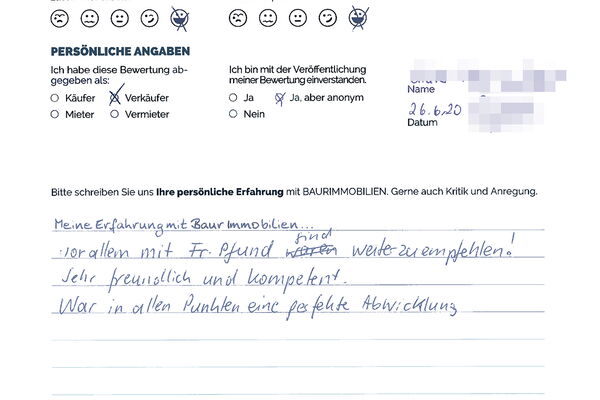 PERSÖNLICHE ANGABEN
Ich habe diese Bewertung ab-
gegeben als:
Käufer Verkäufer
Mieter Vermieter
Ich bin mit der Veröffentlichung
meiner Bewertung einverstanden.
Ja Ja, aber anonym
Nein
Name
26.6.20
Datum
Bitte schreiben Sie uns Ihre persönliche Erfahrung mit BAURIMMOBILIEN. Gerne auch Kritik und Anregung.
Meine Erfahrung mit Baur Immobilien...
vor allem mit Fr. Pfund sind weiterzuempfehlen!
Sehr freundlich und kompetent.
War in allen Punkten eine perfekte Abwicklung